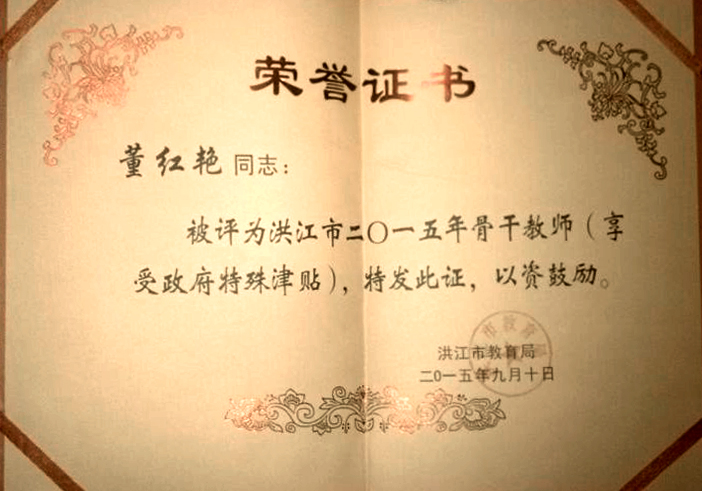 荣誉证书
董红艳同志：
被评为洪江市二〇一五年骨干教师（享
受政府特殊津贴），特发此证，以资鼓励。
洪江市教育局
二〇一五年九月十日